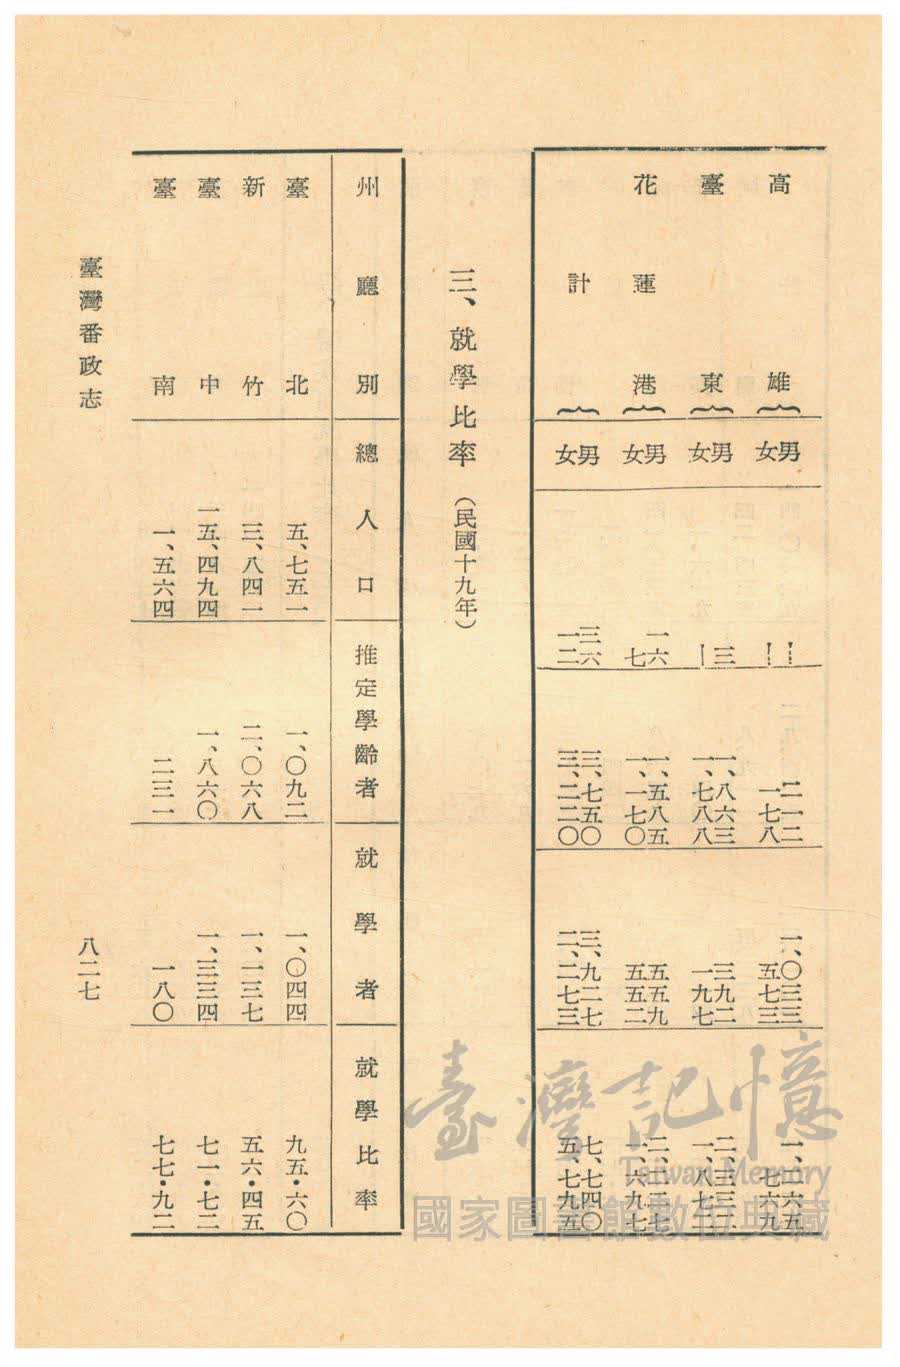 高雄 男 ー 二一二 一、〇三三 一、二六五
女 ー 一七八 五七三 七六九
臺東 男 三 一、八六三 三九二
女 ー 一、七八八 一九七
花蓮港 男 一六 一、五八五 五五九
女 七 一、一七〇 五五二 一、六九七
計 男 三六 三、七五〇 三、九二七 七、七四〇
女 一二 三、二二〇 二、二七三 五、七九五
三、就學比率(民國十九年)
州廳別 總人口 推定學齡者 就學者 就學比率
臺北 五、七五一 一、〇九二 一、〇四四 九五・六〇
新竹 三、八四一 二、〇六八 一、一三七 五六・四五
臺中 一五、四九四 一、八六〇 一、三三四 七一・七二
臺南 一、五六四 二三一 一八〇 七七・九二
臺灣番政志
八二七
臺灣記憶
Taiwan Memory
國家圖書館數位典藏